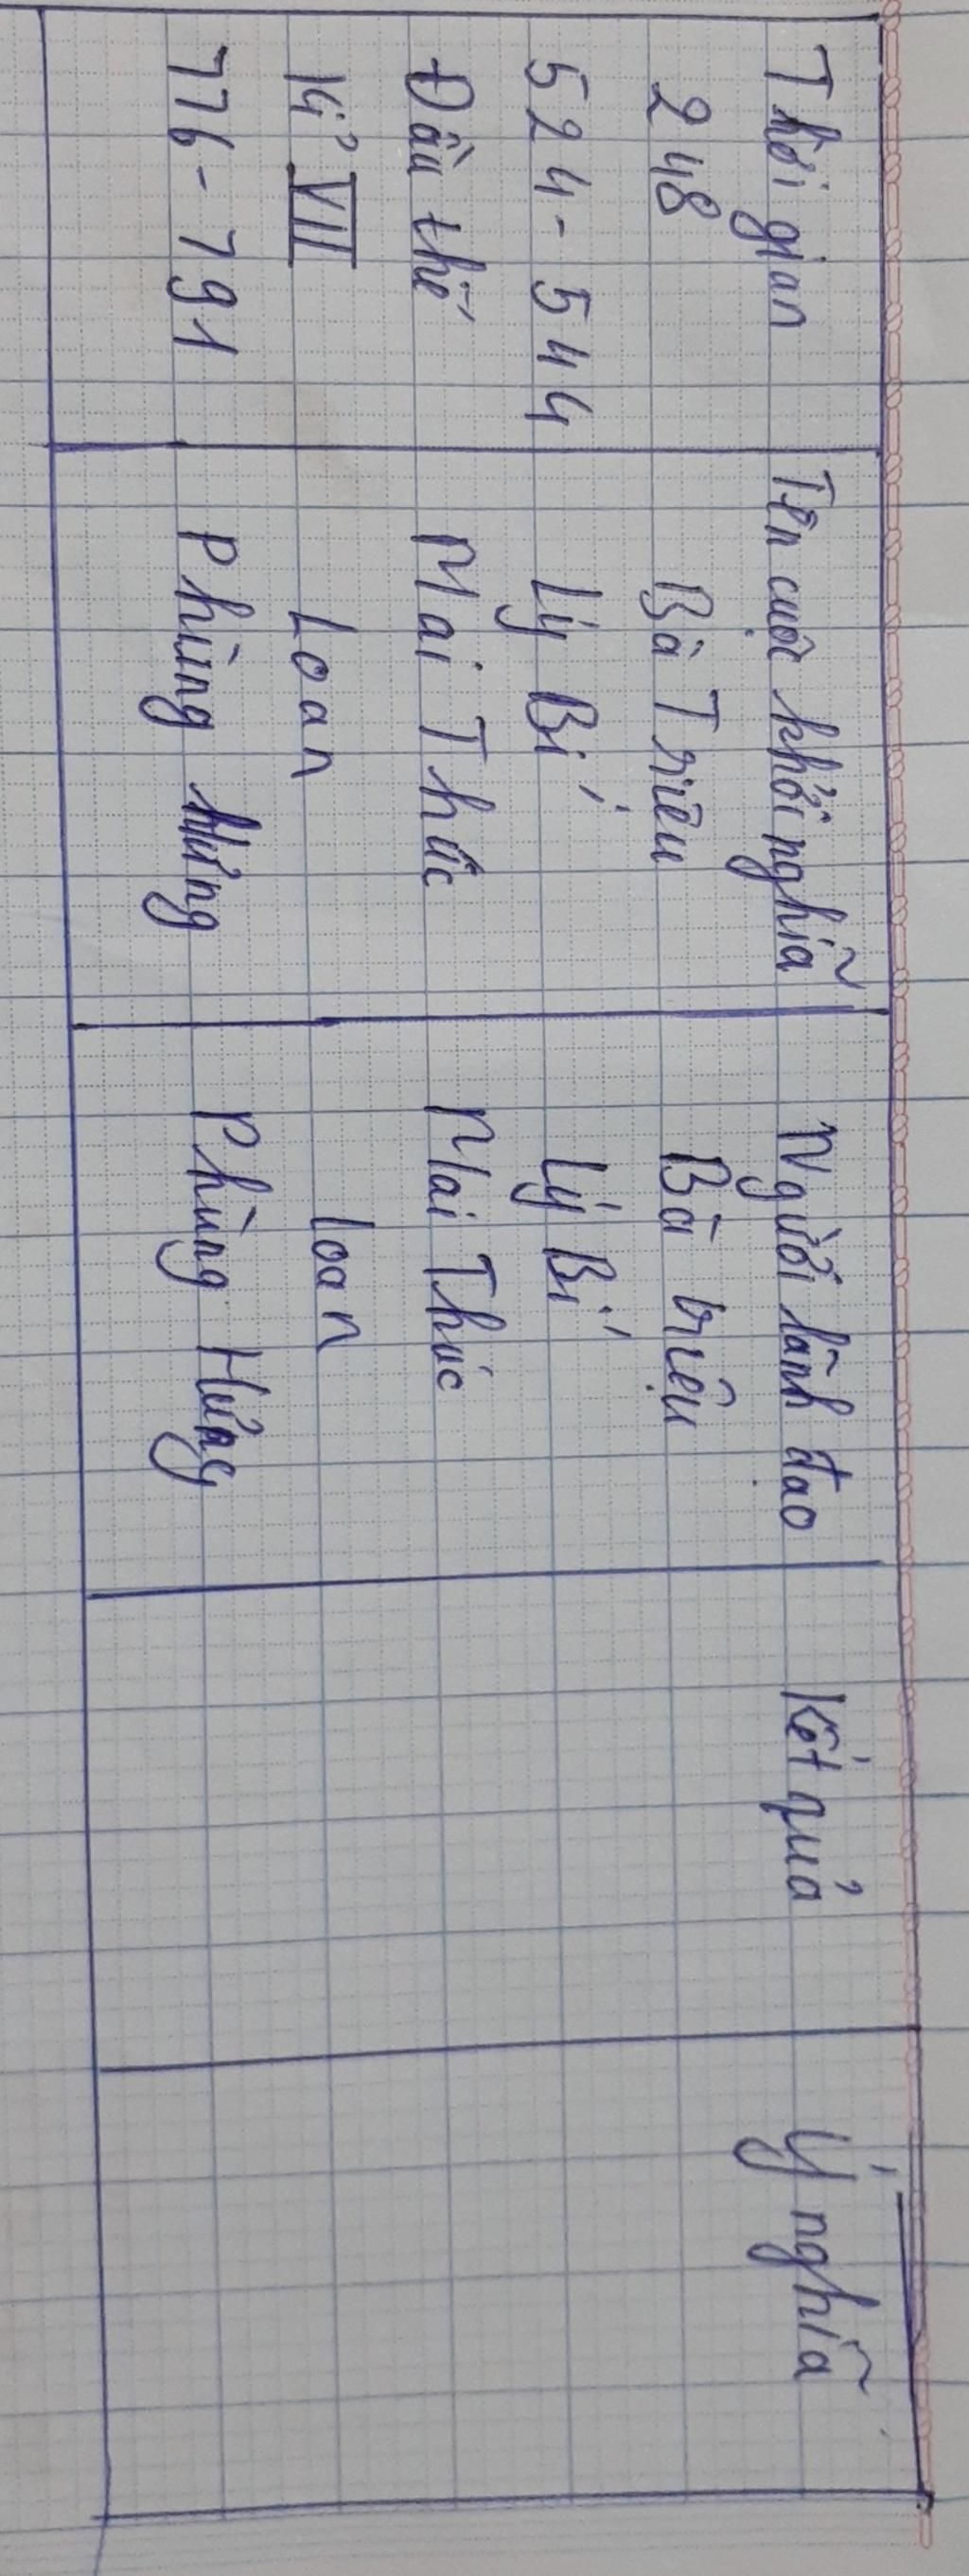 Thời gian Tên cuộc khởi nghĩa Người lãnh đạo Kết quả Ý nghĩa
248 Bà Triệu Bà triệu
524-544 Lý Bí Lý Bí
Đầu thế Mai Thúc Mai Thúc
kỉ VII Loan loan
776-791 Phùng Hưng Phùng Hưng